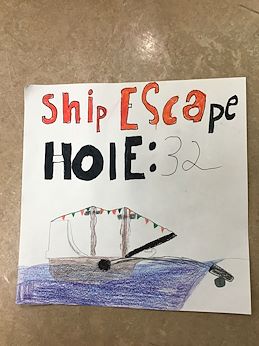 Ship EScape
HOlE: 32